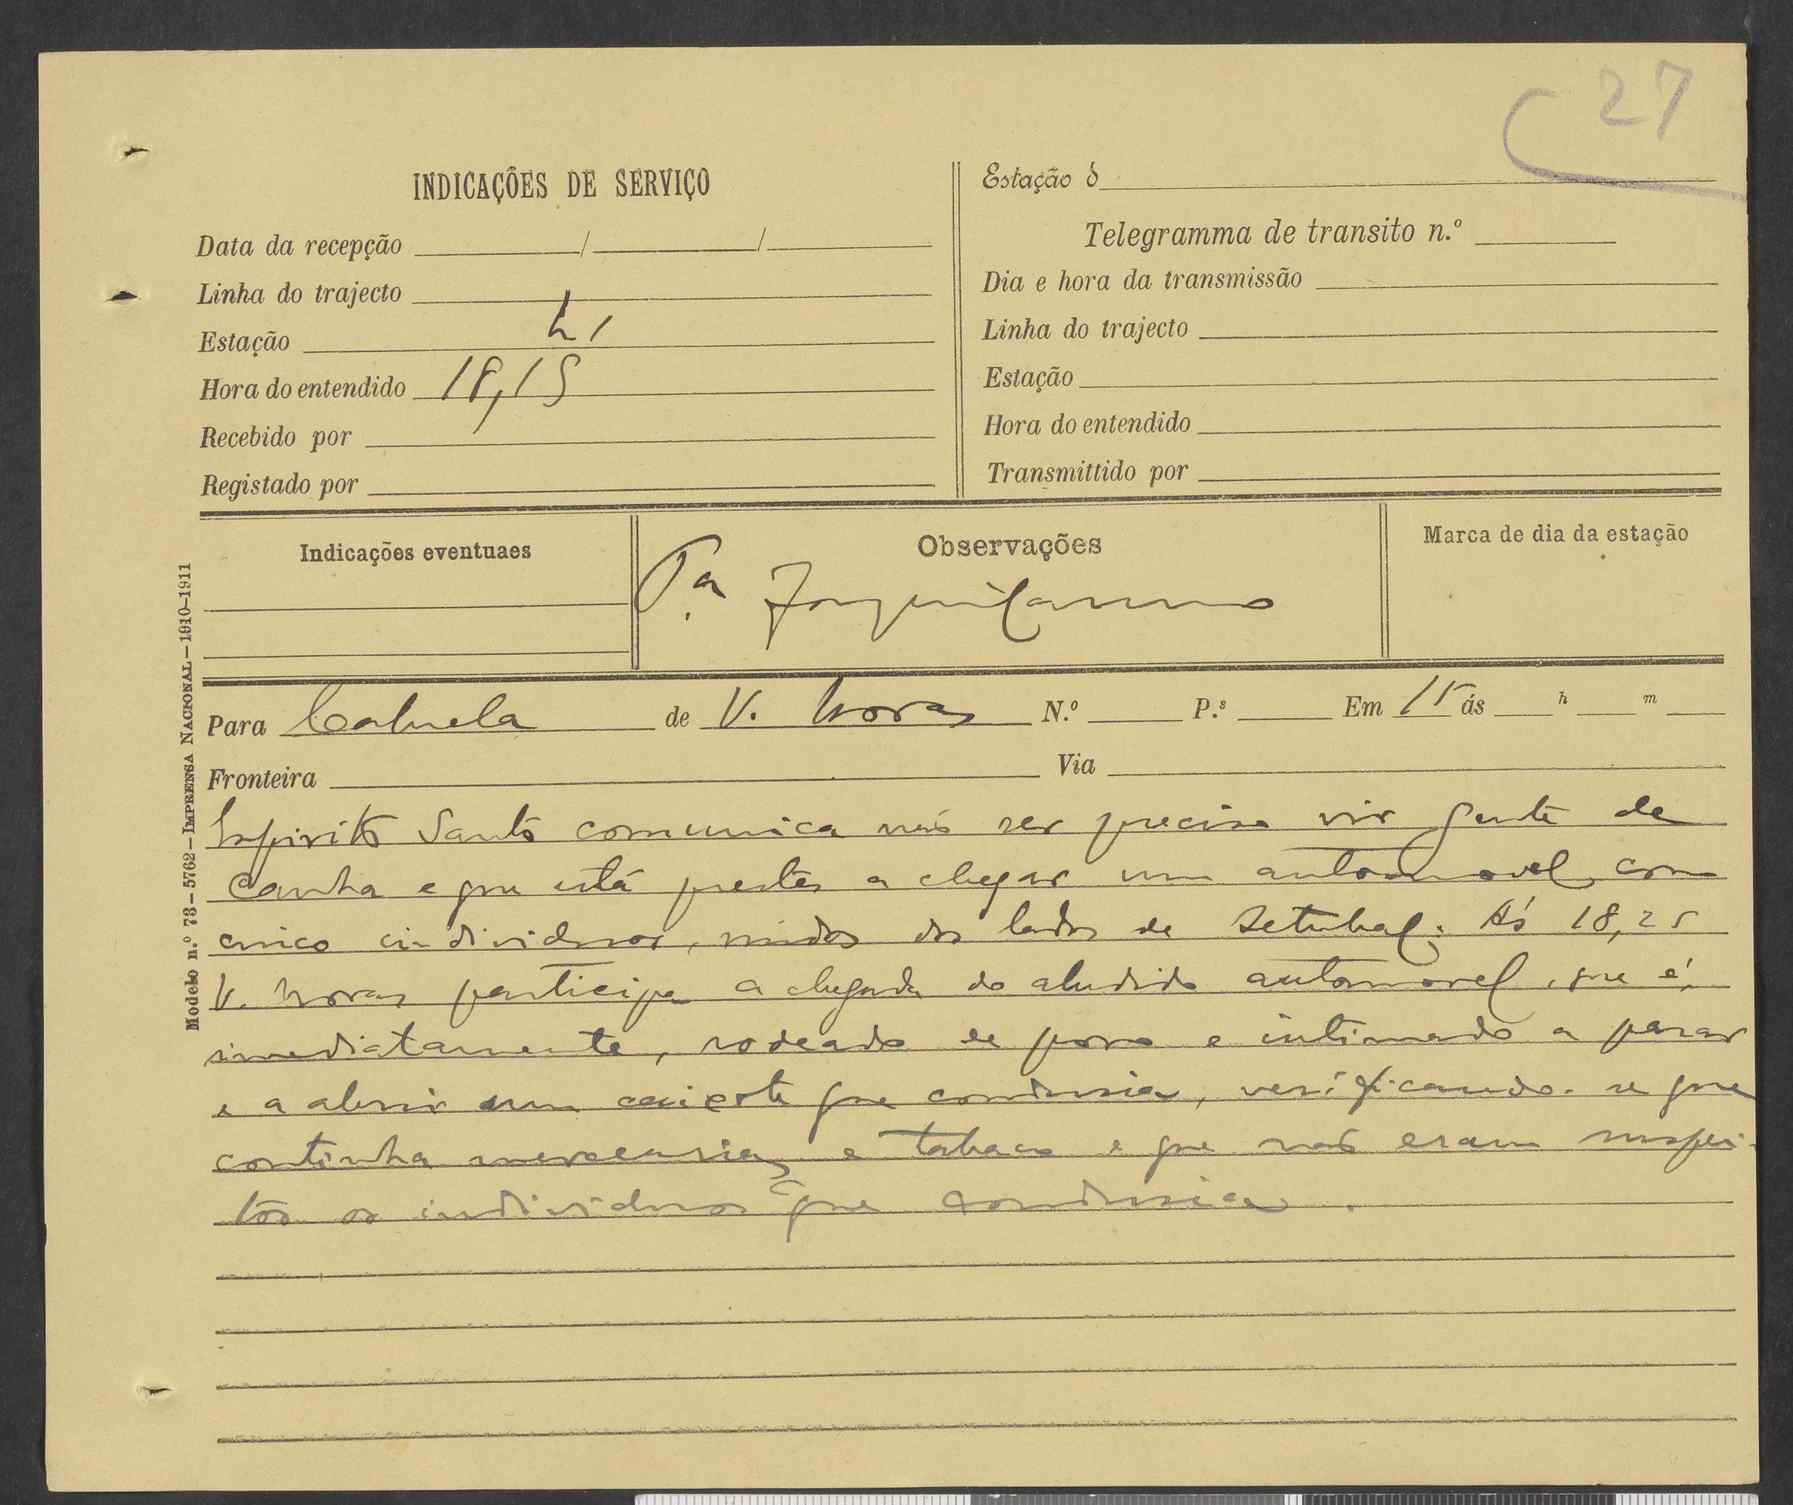 27
INDICAÇÕES DE SERVIÇO
Data da recepção / /
Linha do trajecto
Estação
Hora do entendido 18,15
Recebido por
Registado por
Estação d
Telegramma de transito n.º
Dia e hora da transmissão
Linha do trajecto
Estação
Hora do entendido
Transmittido por
Indicações eventuaes
Observações
Pª
Marca de dia da estação
Modelo n.º 73—5762—IMPRENSA NACIONAL—1910-1911
Para de V. Novas N.º P.ˢ Em 15 ás h m
Fronteira Via
Espirito Santo comunica não ser preciso vir gente de
Canha e que está prestes a chegar um automovel com
cinco individuos, vindos dos lados de Setubal. Ás 18,25
V. Novas participa a chegada do aludido automovel, que é,
imediatamente, rodeado de povo e intimado a parar
e a abrir um caixote que condusia, verificando-se que
continha mercearias e tabaco e que não eram suspei-
tos os individuos que condusia.